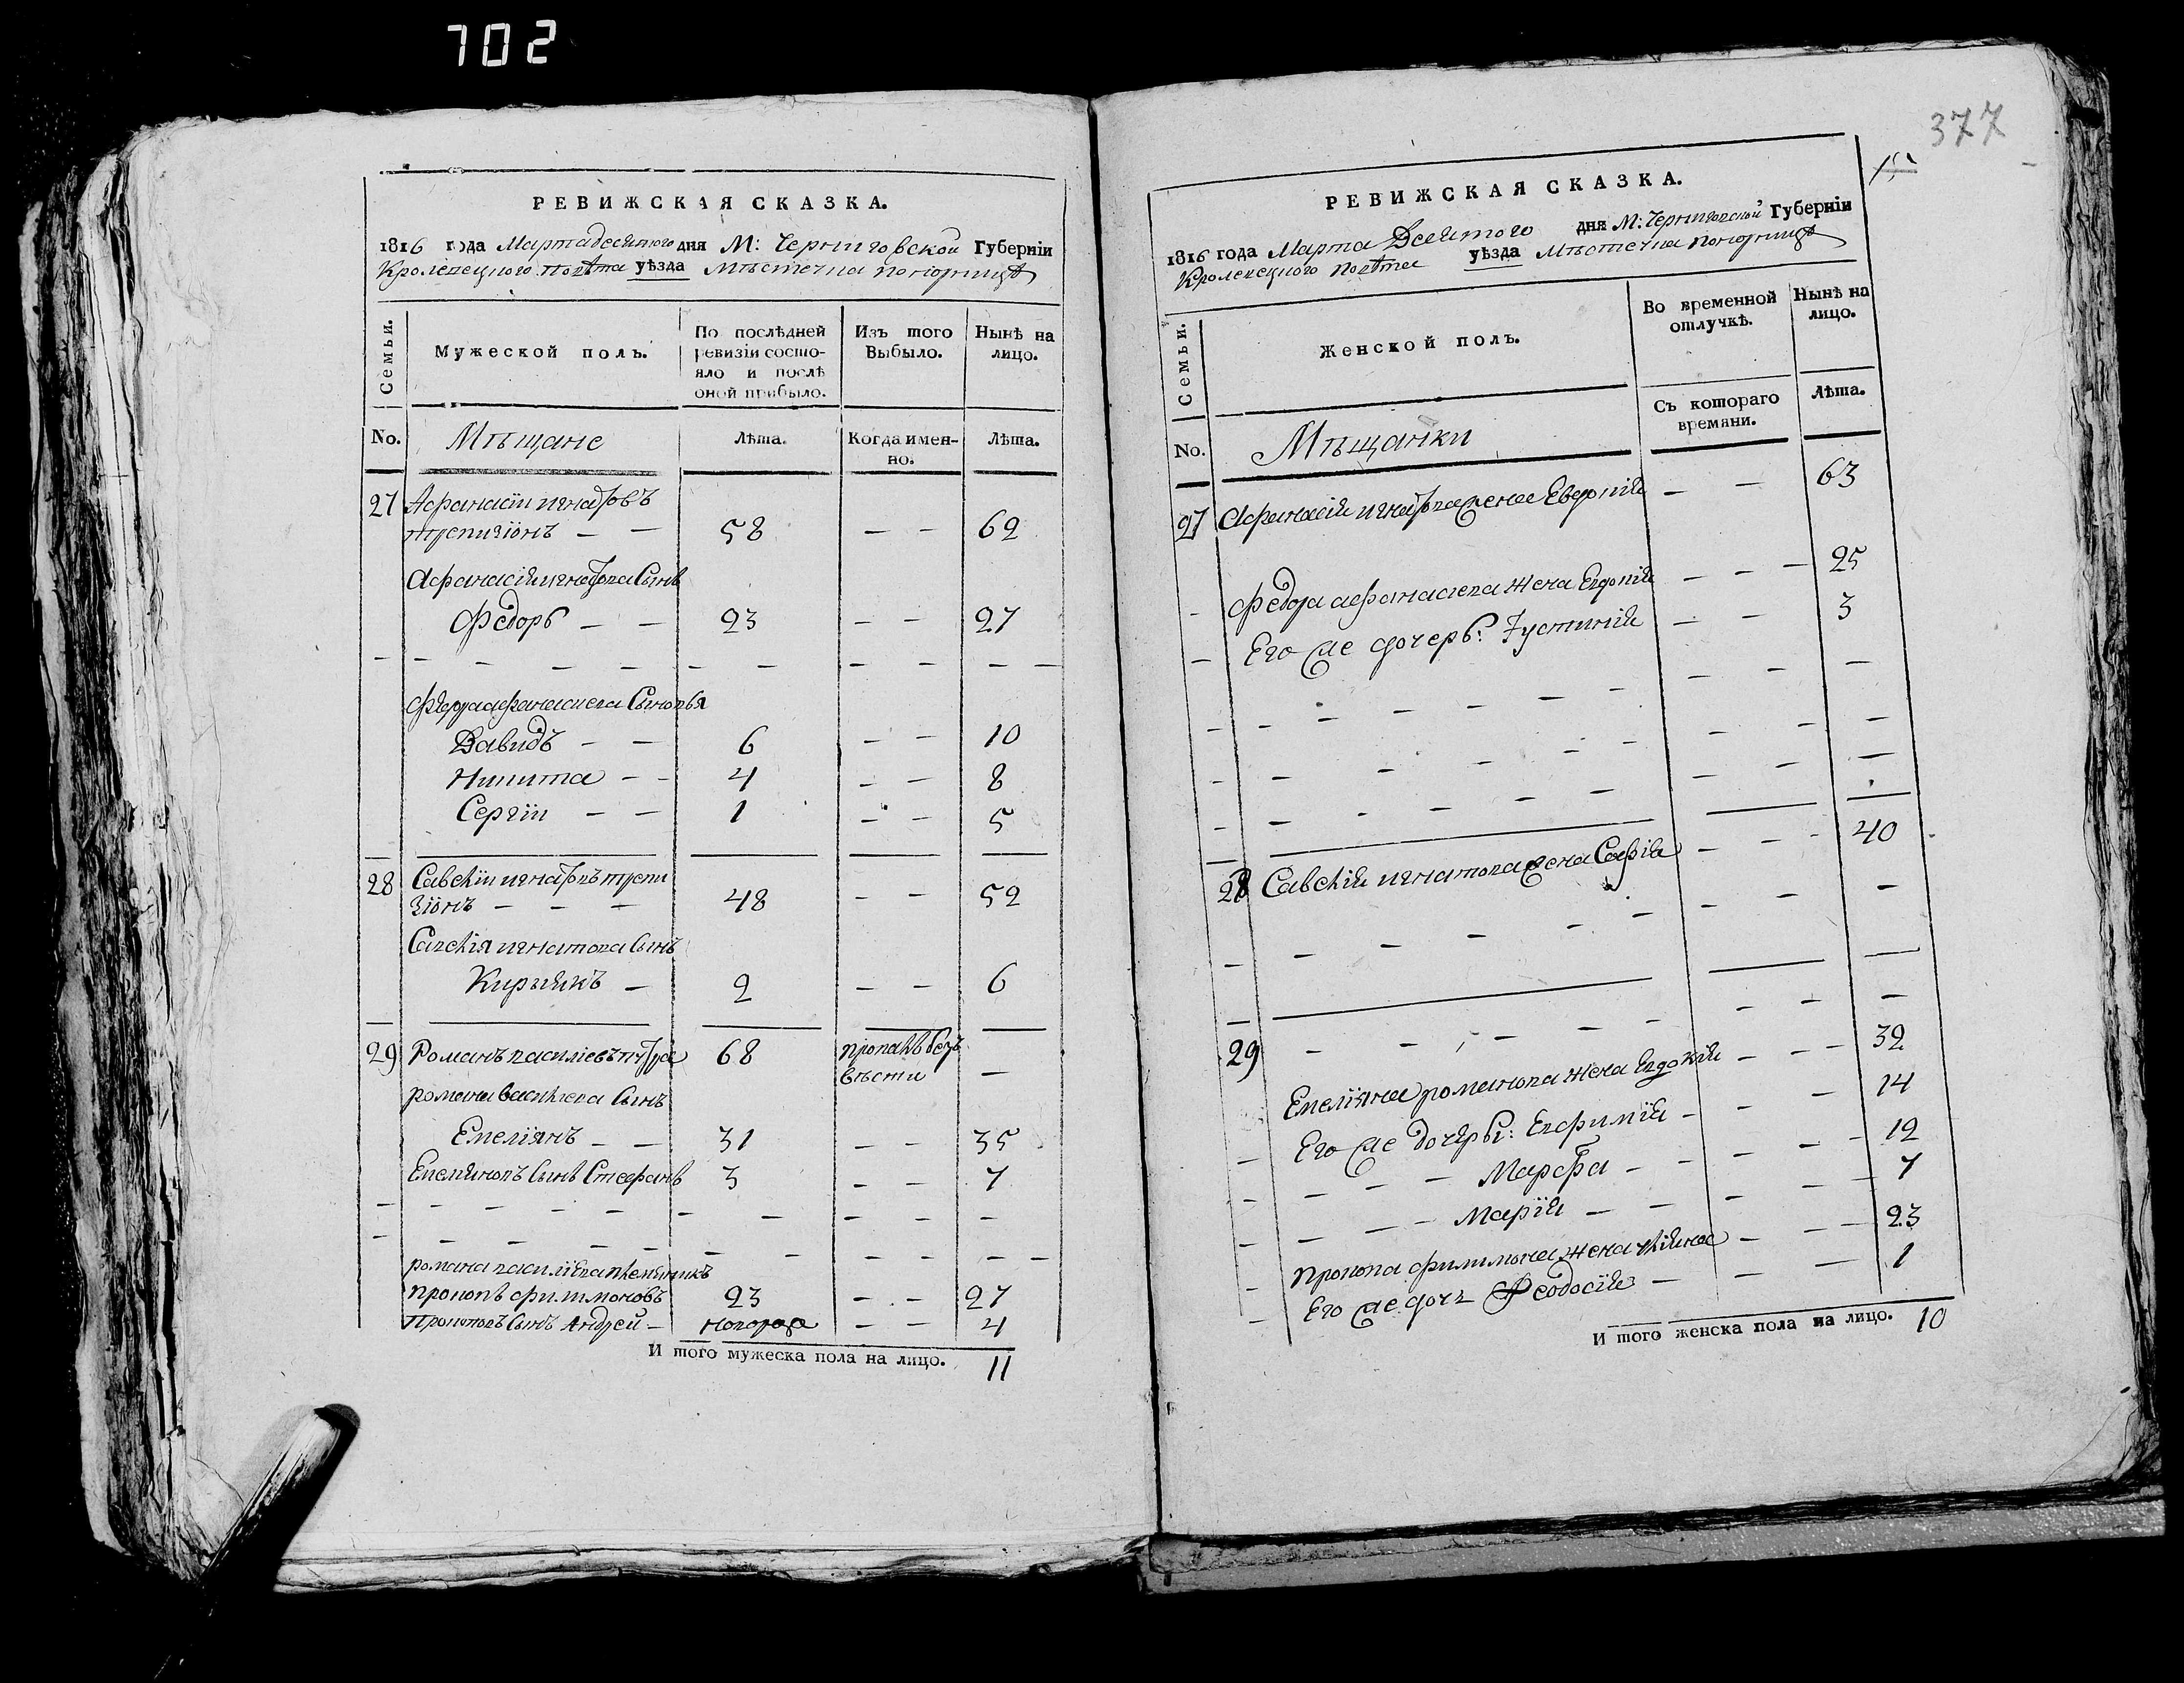 702
РЕВИЖСКАЯ СКАЗКА.
1816 года Марта десятого дня М: Черниговской Губерніи
Кролевецкого повѣта уѣзда Мѣстечка понорницѣ
Семьи.
Мужеской полъ.
По послѣдней ревизіи состояло и послѣ оной прибыло.
Изъ того Выбыло.
Нынѣ на лицо.
No.
Мѣщане
Лѣта.
Когда именно.
Лѣта.
27 Афанасіи игнатовъ
58 — — 62
Афанасія игнатова Сынъ
Федоръ — — 23 — — 27
Федора афанасиева Сыновья
Давидъ — — 6 — — 10
Никита — — 4 — — 8
Сергіи — — 1 — — 5
28 Савскіи игнатовъ
48 — — 52
Савскія игнатова Сынъ
Кирыякъ — 2 — — 6
29 Романъ василіевъ 68 пропалъ безъ
вѣсти —
романа василиева Сынъ
Емеліянъ — — 31 — — 35
Емеляновъ Сынъ Стефанъ 3 — — 7
романа василіева племянникъ
прокопъ филимоновъ 23 — — 27
Прокоповъ Сынъ Андрей — — — 4
И того мужеска пола на лицо. 11
377
РЕВИЖСКАЯ СКАЗКА.
1816 года Марта Десятого дня М: Черниговской Губерніи
Кролевецкого повѣта уѣзда Мѣстечка понорницѣ
Семьи.
Женской полъ.
Во временной отлучкѣ.
Нынѣ на лицо.
No.
Мѣщанки
Съ котораго времяни.
Лѣта.
27 Афанасія игнатова жена Евдокія — — 63
— Федора афанасиева жена Евдокія — — — 25
— Его же дочерь: Іустинія — — 3
28 Савскія игнатова жена Софія — — - 40
29
Емеліяна романова жена Евдокія — — — 32
— Его же дочеры: Евфимія — — — 14
Марфа — — — 12
Марія — — — 7
— прокопа филимона жена уліяна — — — 23
— Его же дочь Феодосія — — — 1
И того женска пола на лицо. 10